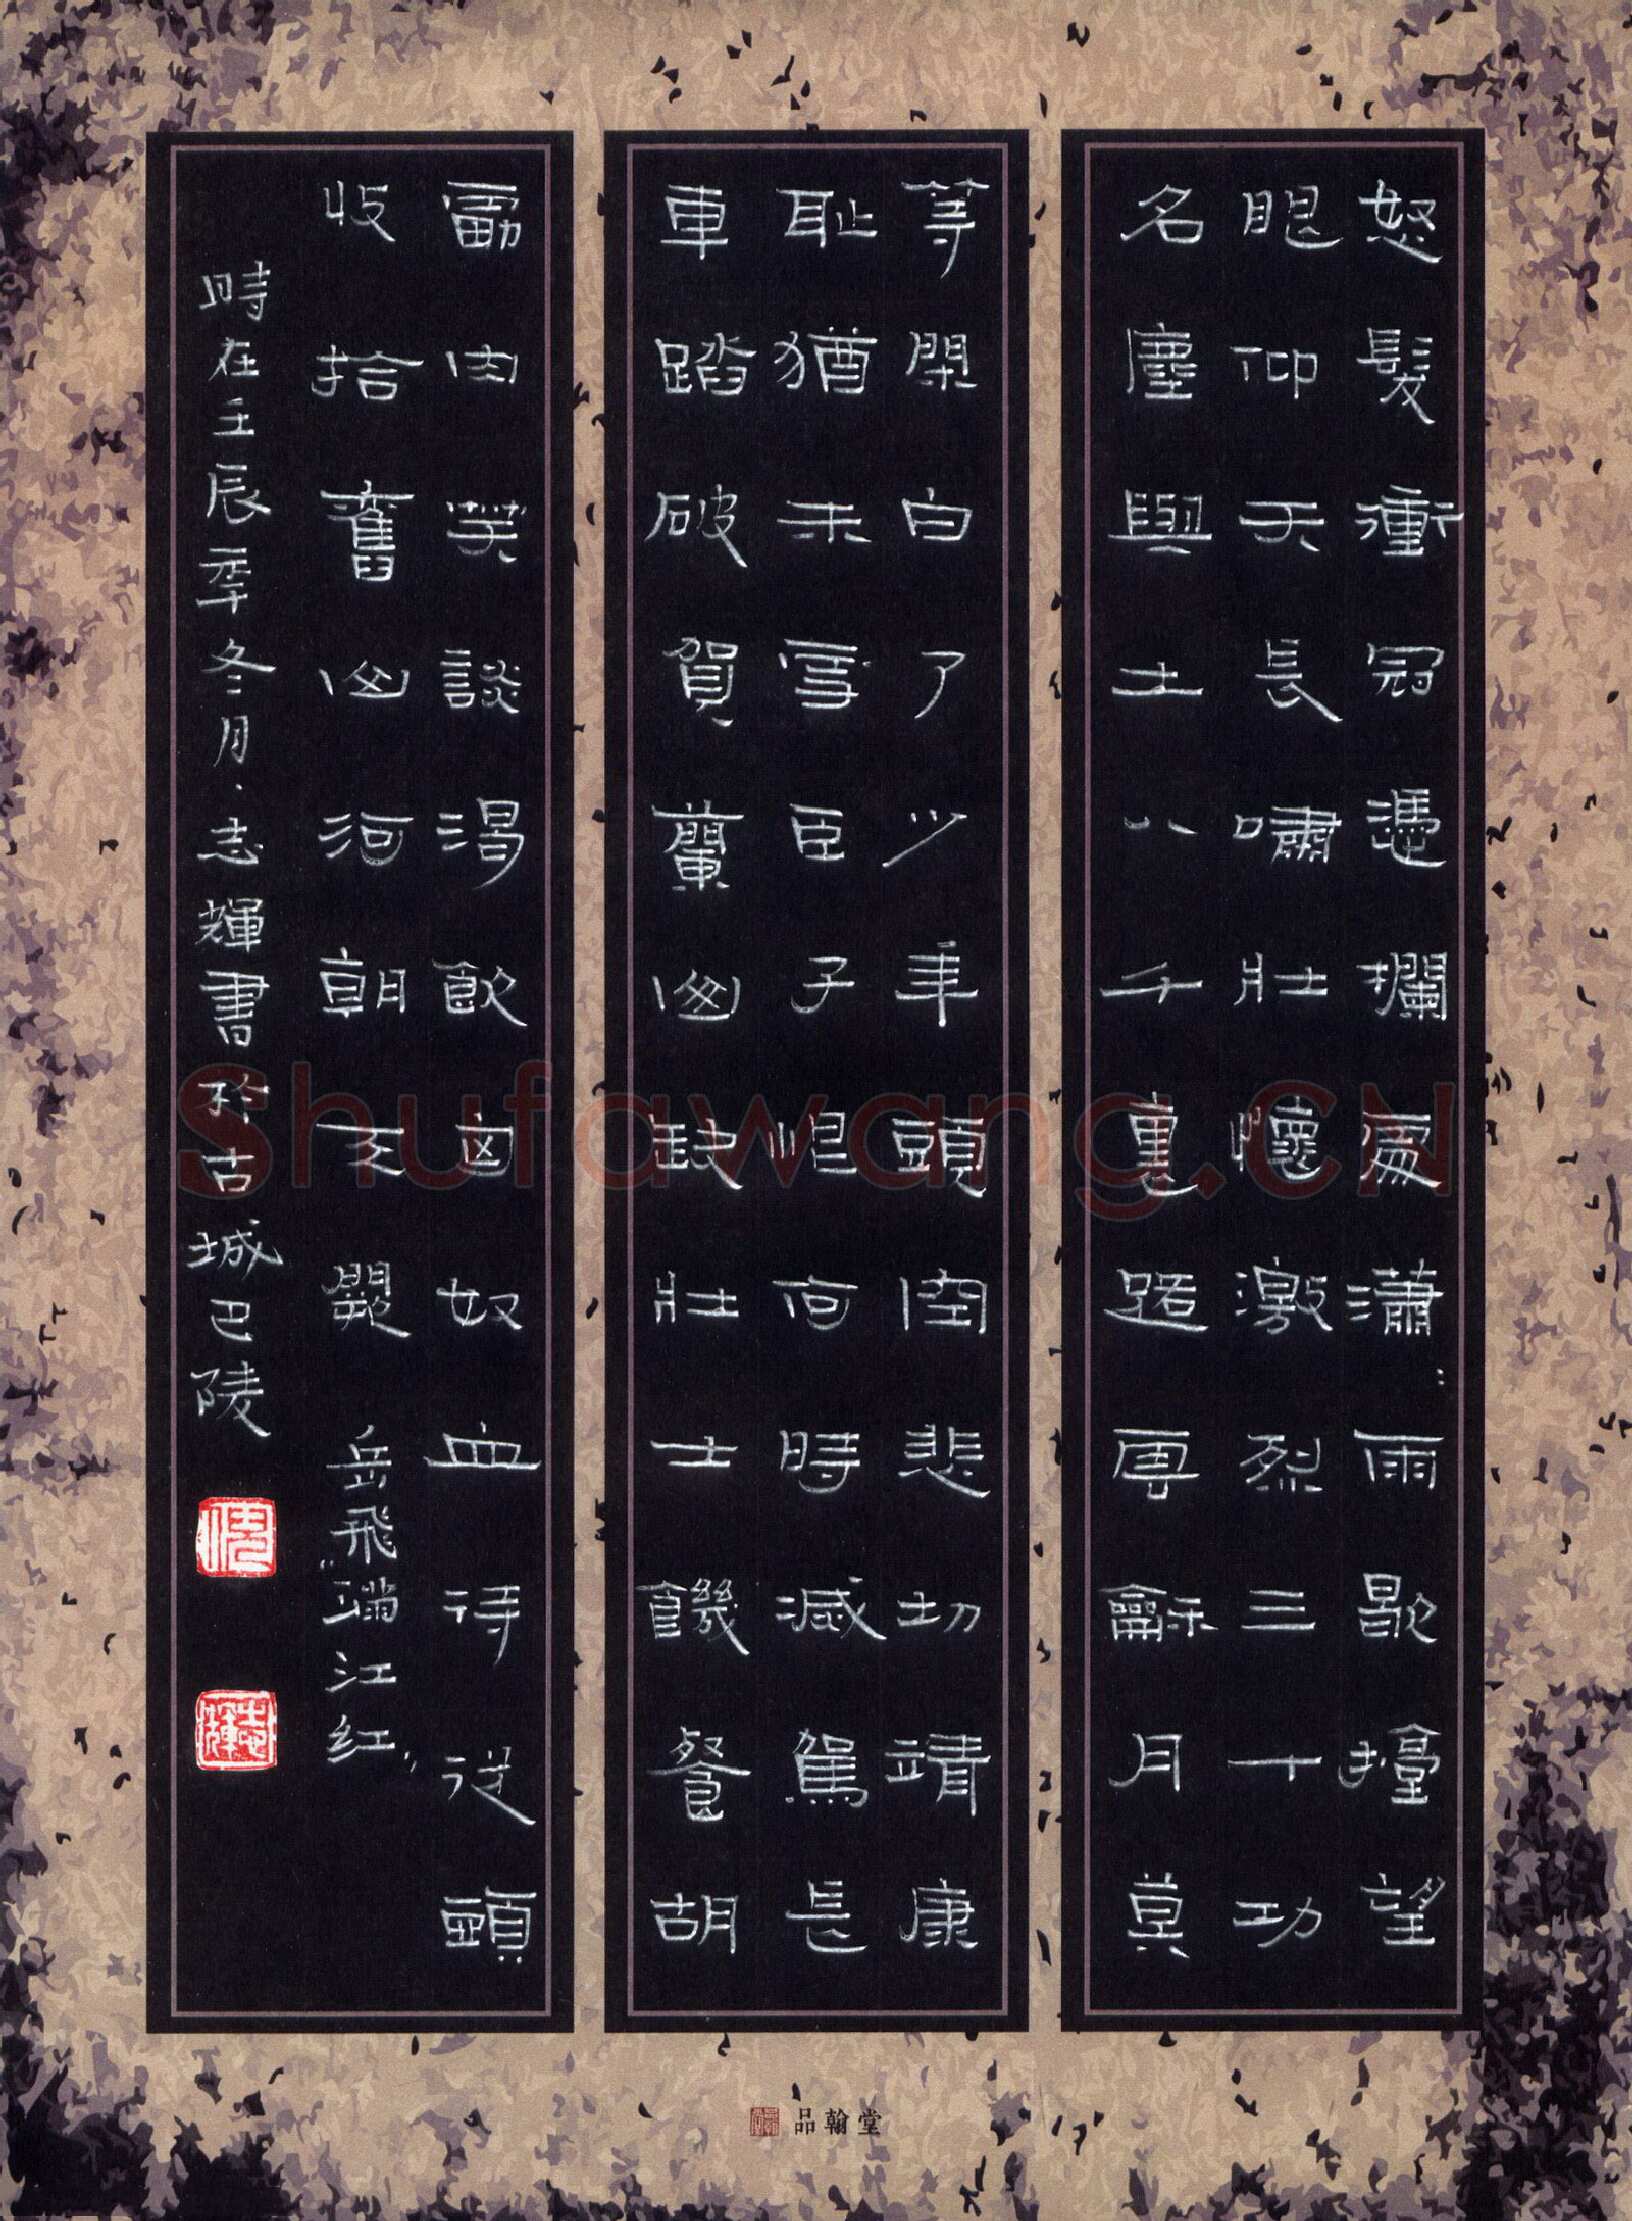 怒髮衝冠憑欄處瀟:雨歇擡望
眼仰天長嘯壯懷激烈三十功
名塵與土八千里路雲龢月莫
等閑白了少年頭空悲切靖康
耻猶未雪臣子恨何時滅駕長
車踏破賀蘭山缺壯士饑餐胡
虜肉笑談渴飲匈奴血待從頭
收拾舊山河朝天闕 岳飛"滿江红"
時在壬辰年冬月.志輝書於古城巴陵
志輝
品翰堂
Shufawang.CN